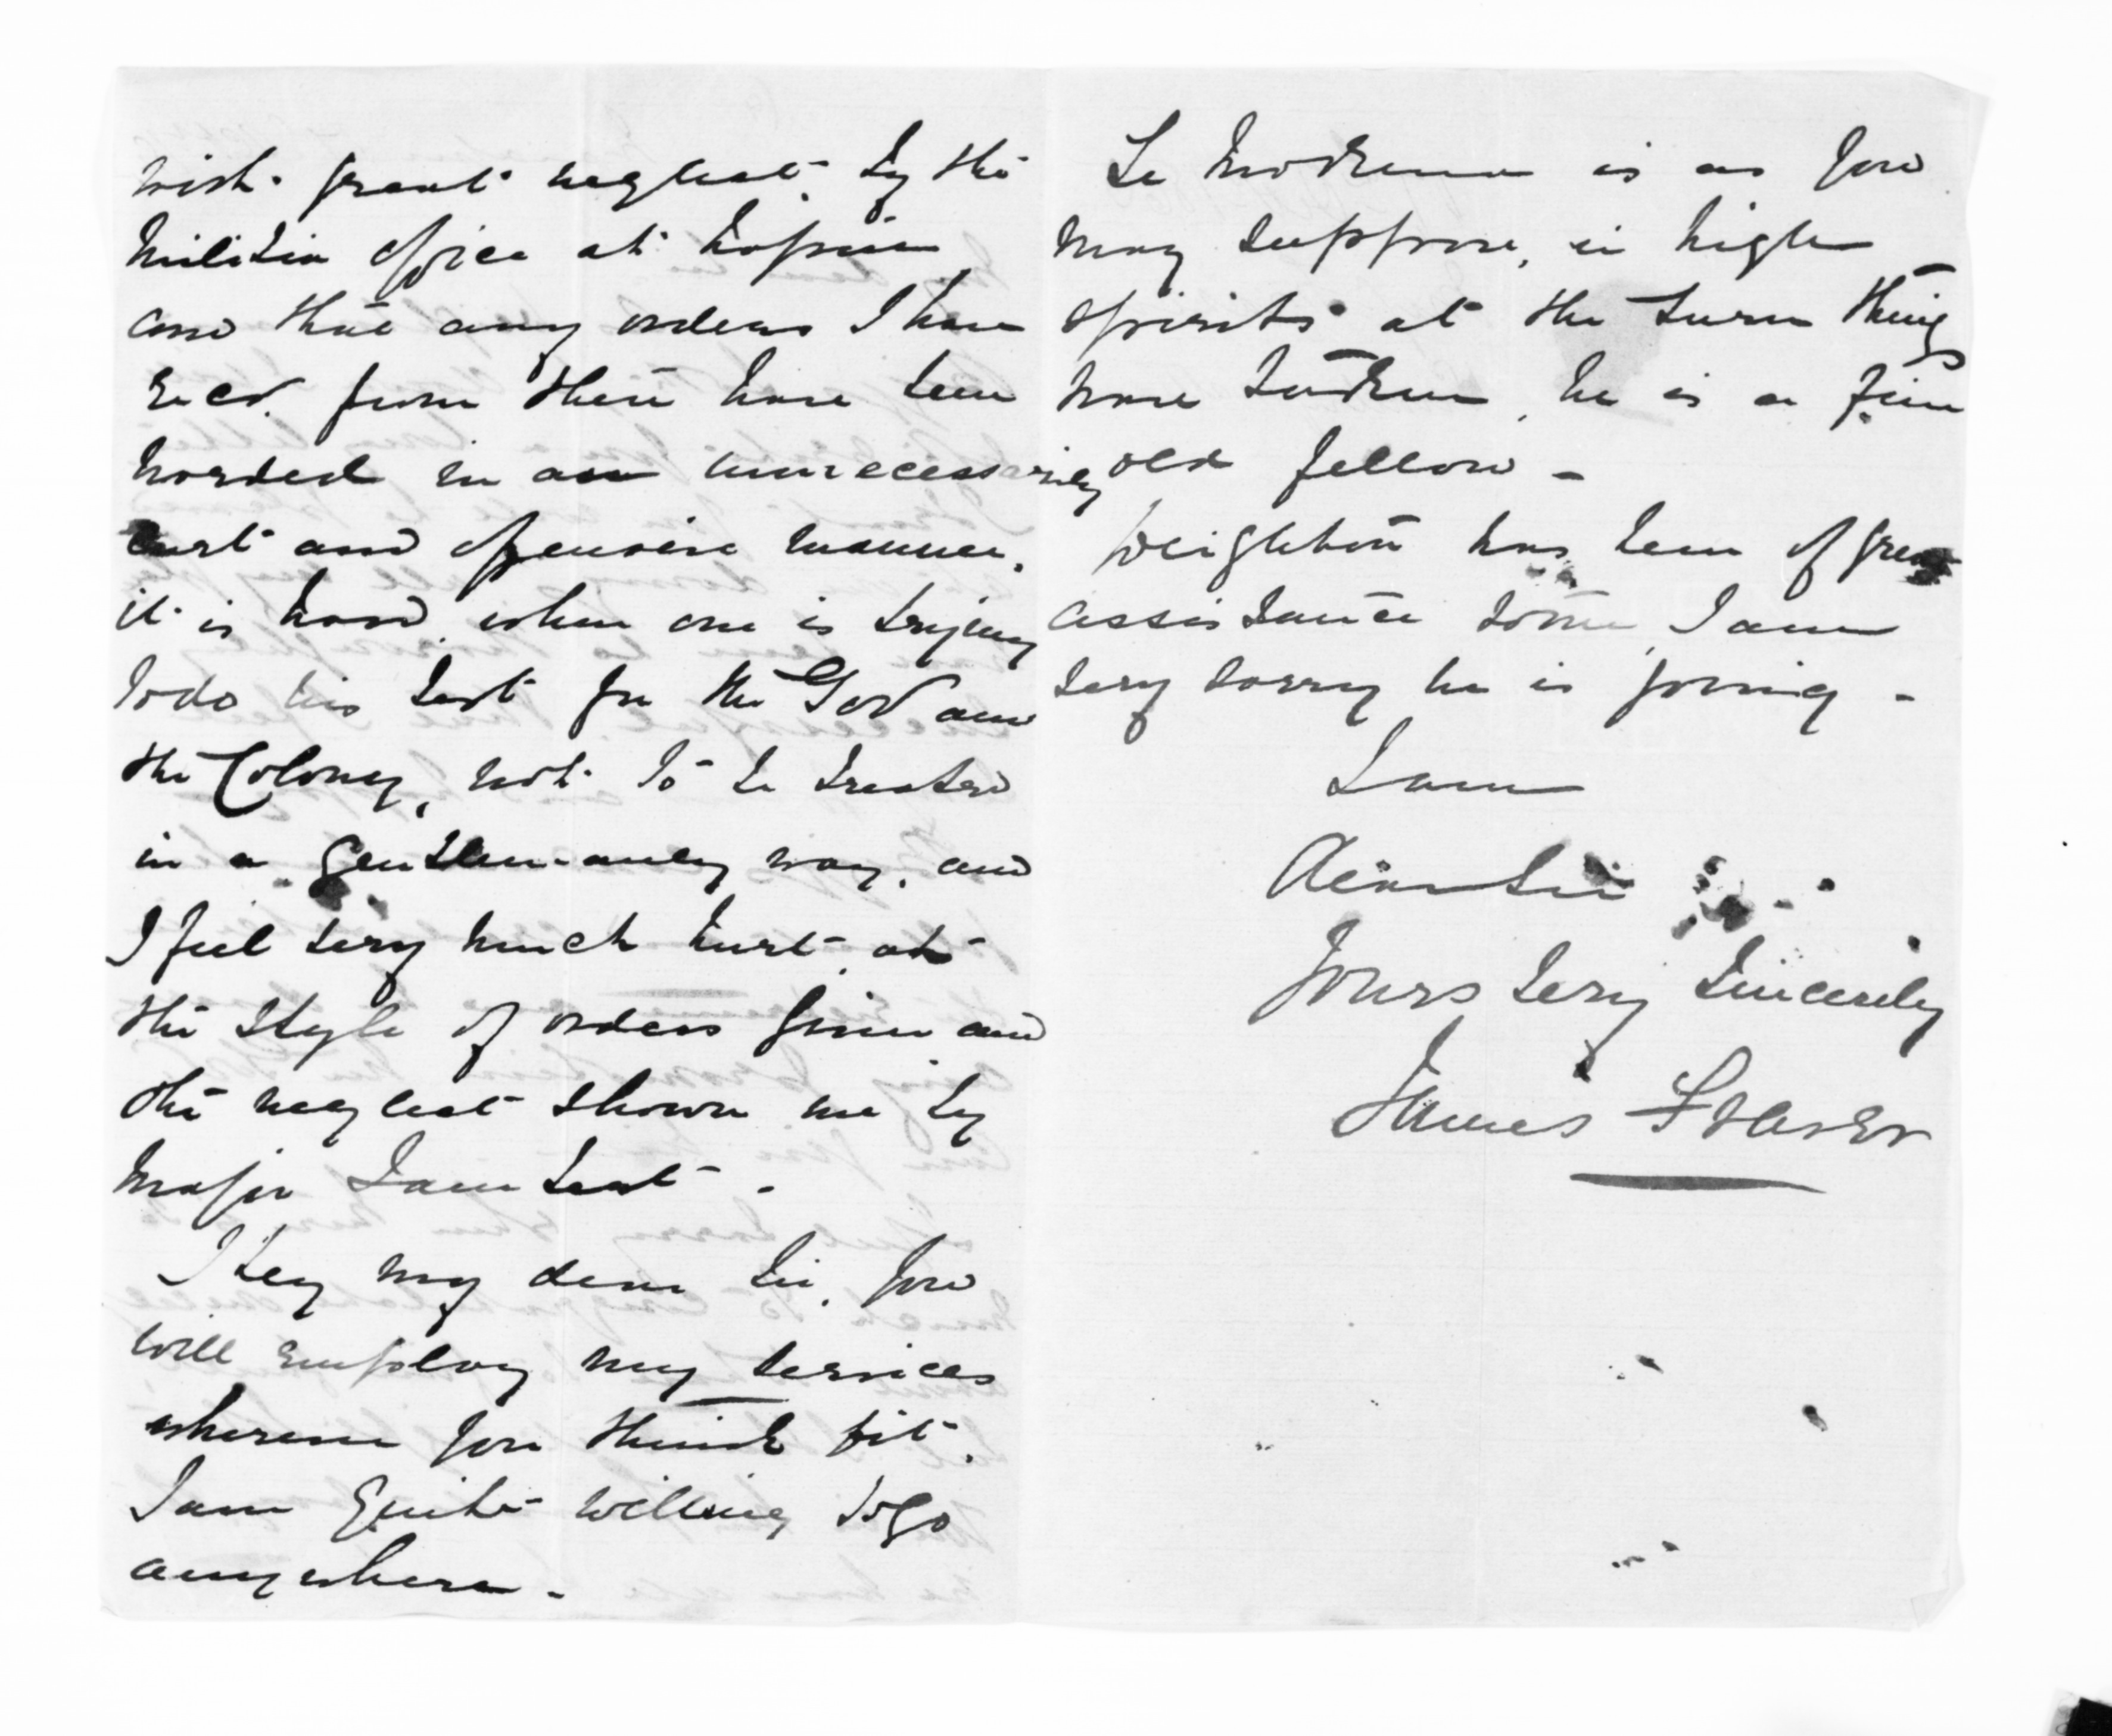 with great neglect by the
Militia office at Napier
and that any orders I have
recd. from there have been
worded in an unnecessarily
curt and offensive manner.
it is hard, when one is trying
to do his best for the Govt and
the Colony, not to be treated
in a gentlemanly way, and
I feel very much hurt, at
the style of orders given and
the neglect shown me by
Major Lambert.
I beg my dear Sir, you
will employ my services
wherever you think fit.
I am quite willing to go
anywhere.
Te Moananui is as you
may suppose, in high
spirits at the turn things
have taken, he is a fine
old fellow -
Deighton has been of great
assistance to me, I am
very sorry he is going -
I am
Dear Sir
Yours very Sincerely
James Fraser